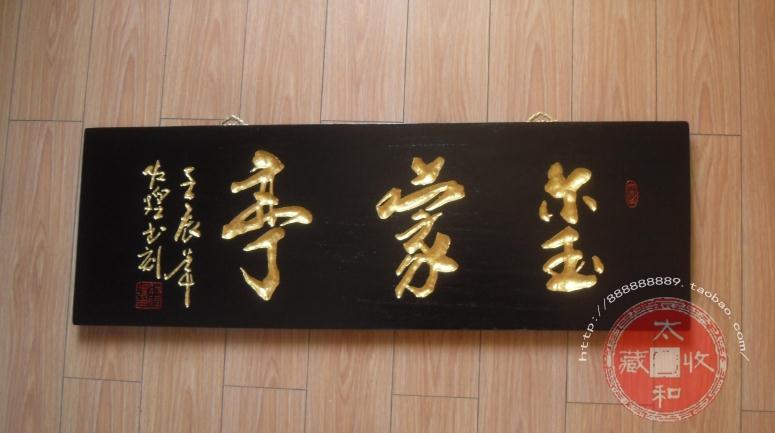 玺蒙亭
壬辰年
煌书刻
http://888888889.taobao.com/
太和收藏